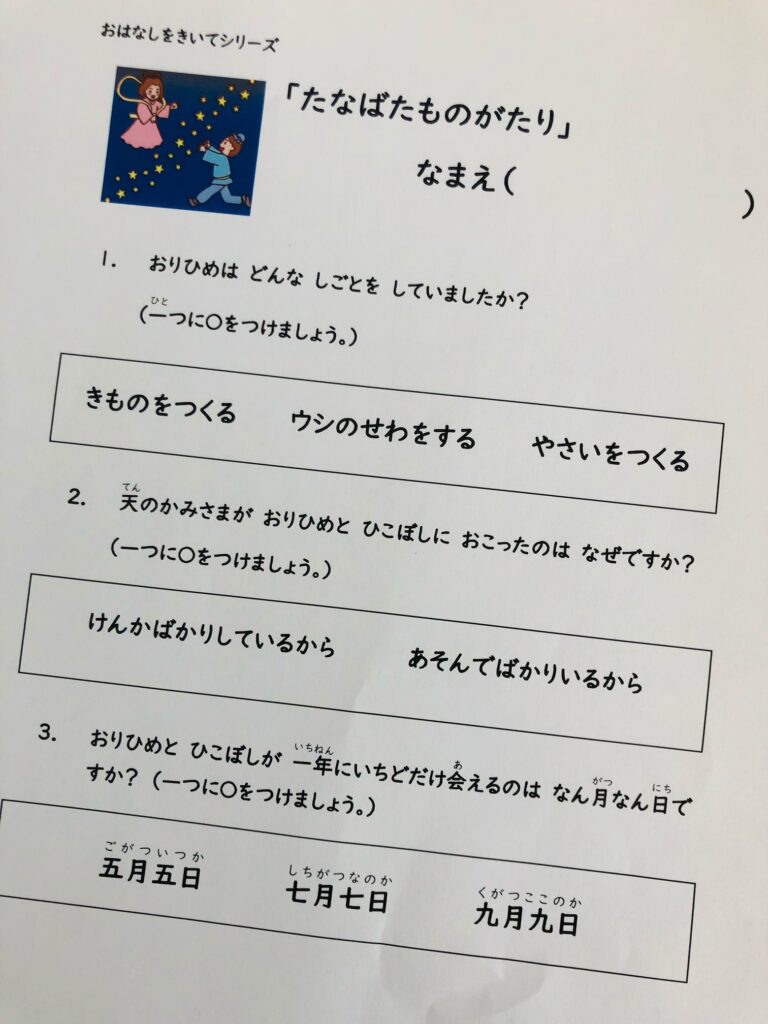 おはなしをきいてシリーズ
「たなばたものがたり」
なまえ(　　　　　　　　　)
1. おりひめは どんな しごとを していましたか?
ひと
(一つに〇をつけましょう。)
きものをつくる ウシのせわをする やさいをつくる
てん
2. 天のかみさまが おりひめと ひこぼしに おこったのは なぜですか?
(一つに〇をつけましょう。)
けんかばかりしているから あそんでばかりいるから
いちねん あ がつ にち
3. おりひめと ひこぼしが 一年にいちどだけ会えるのは なん月なん日で
すか? (一つに〇をつけましょう。)
ごがついつか しちがつなのか くがつここのか
五月五日 七月七日 九月九日